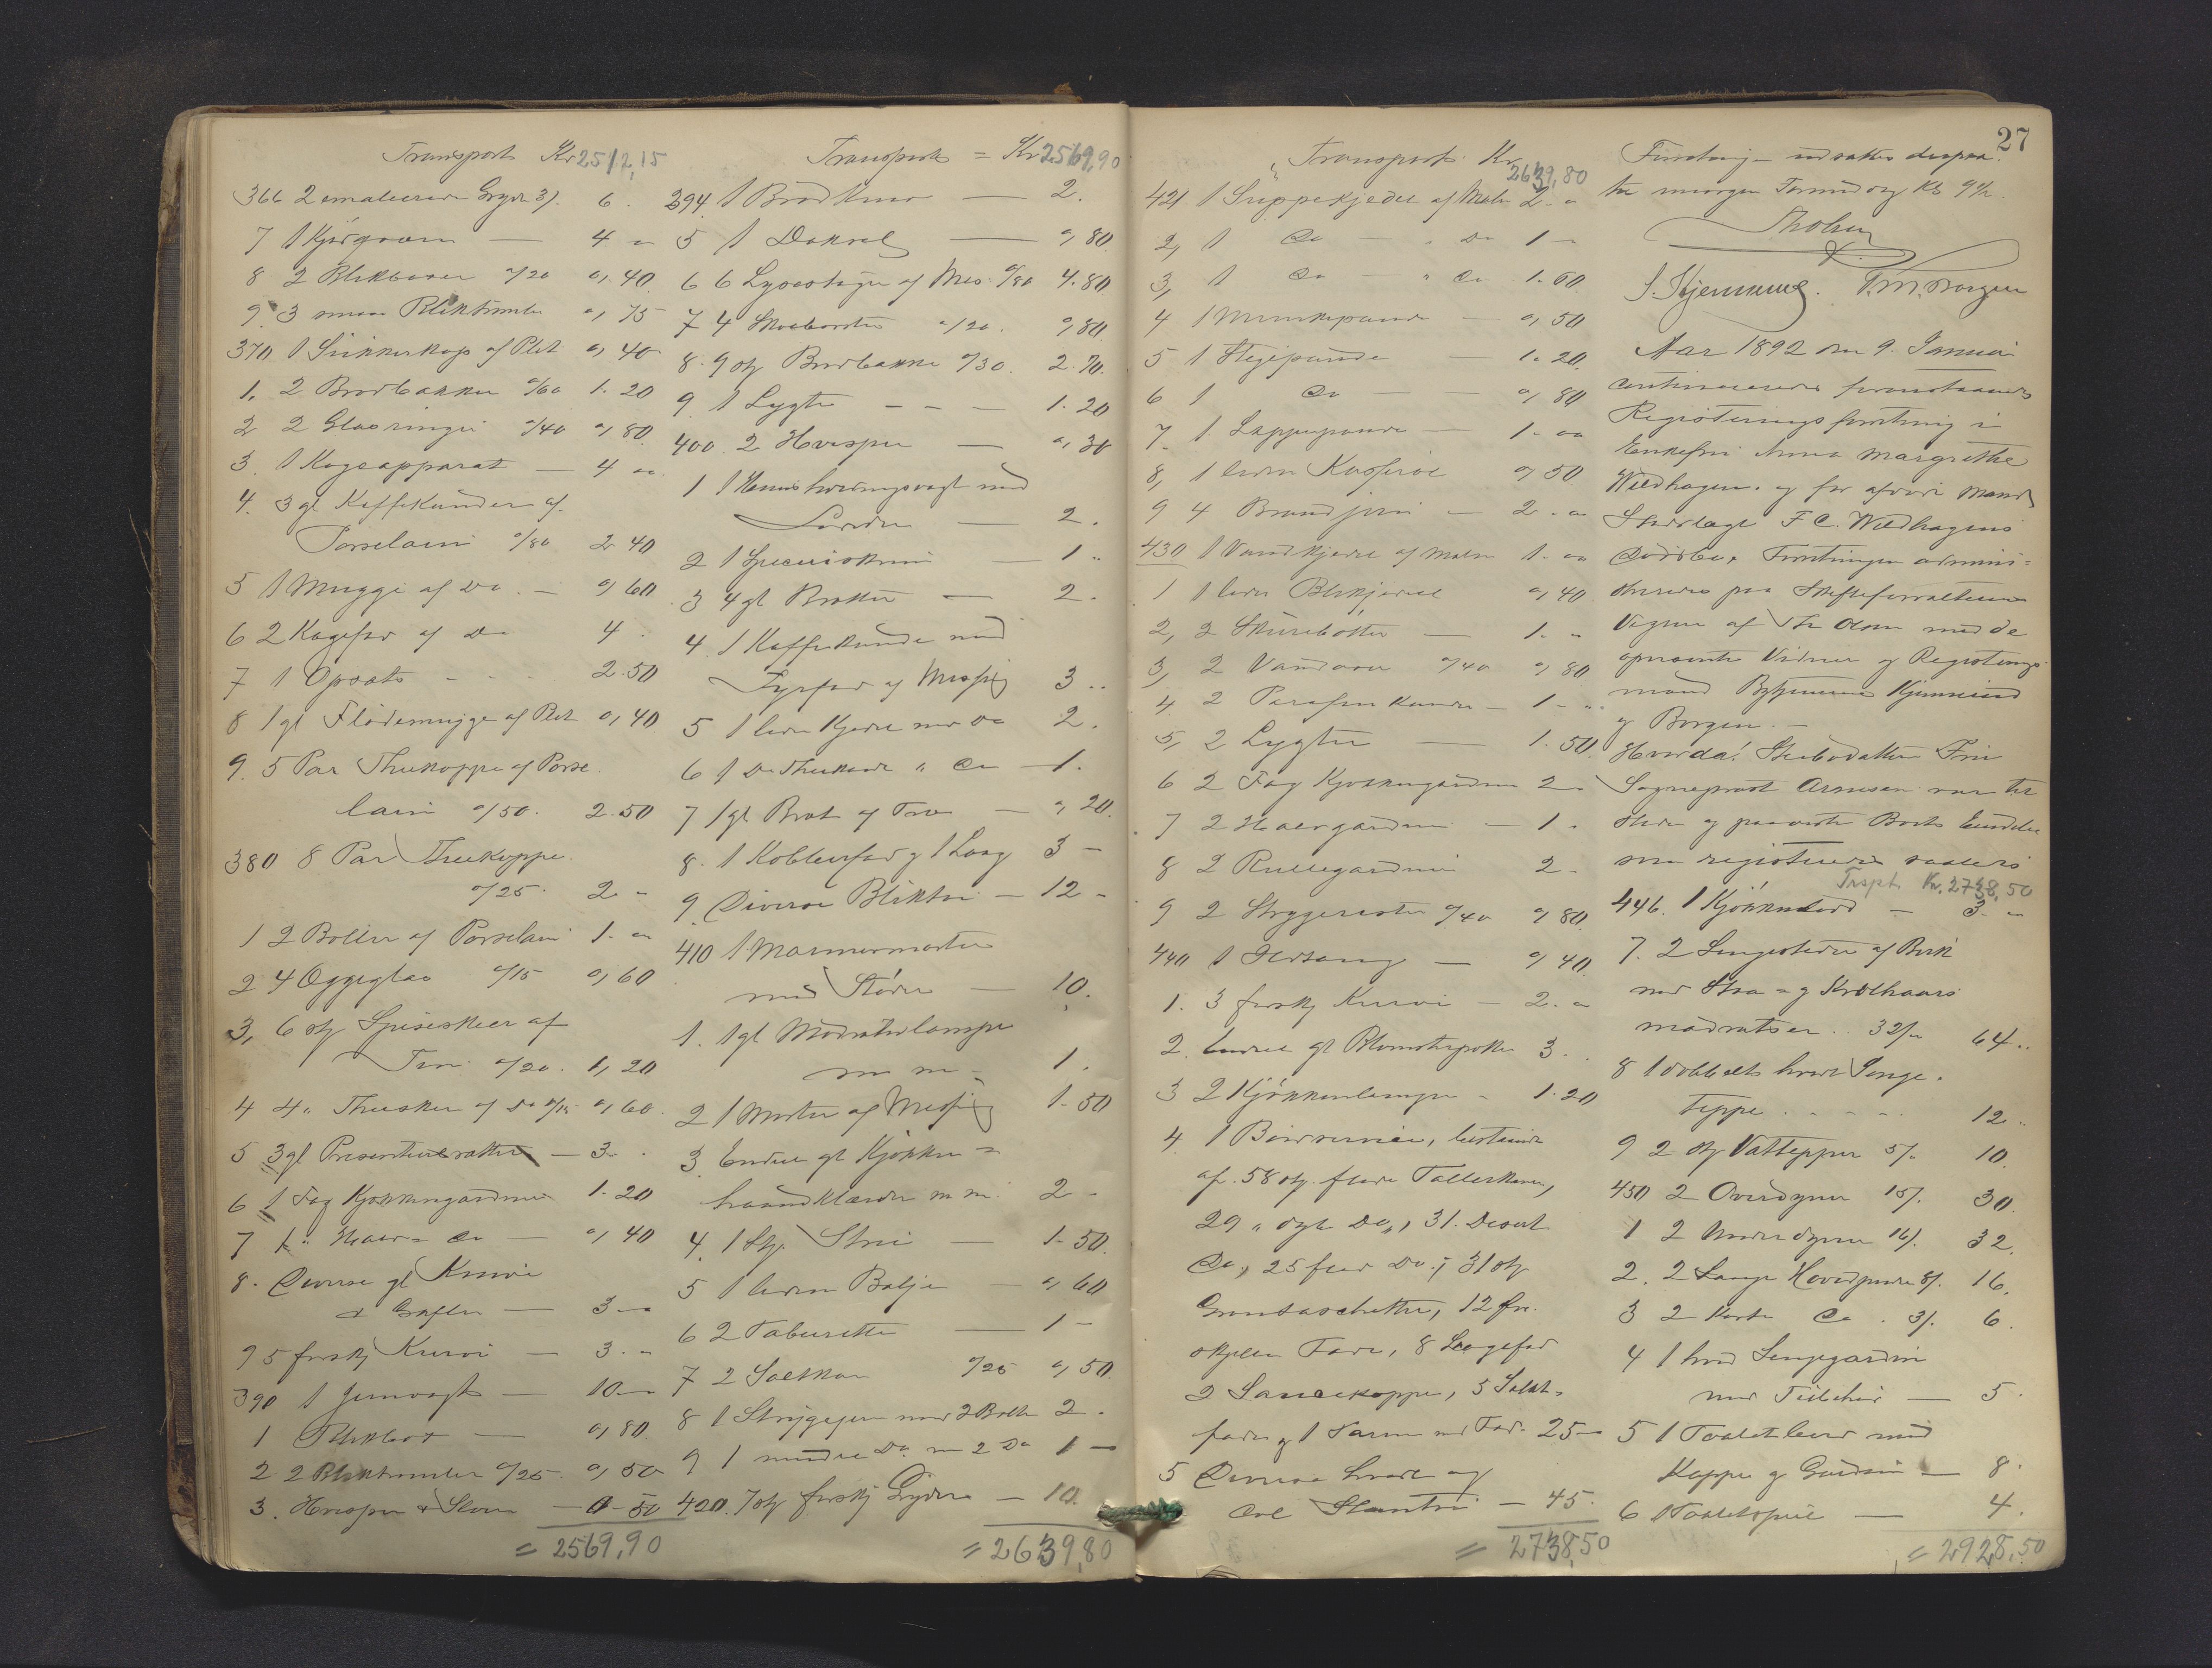 Transport Kr 2512,15
366 2 emalierede Gryder 3/. 6.
7 1 Kjørgraum — 4 "
8 2 Blikbøsser a/20 0,40
9. 3 smaa Bliktromler 0,75
370 1 Sukkerkop af Plet 0,40
1. 2 Brødbakker a/60 1.20
2 2 Glasringe a/40 0,80
3. 1 Kogeapparat — 4 "
4. 3 gl Kaffekander af
Porselain a/80 2.40
5 1 Mugge af Do. — 0,60
6 2 Kagefad af Do 4.
7 1 Opsats - - - 2.50
8 1 gl Flödemugge af Plet 0,40
9. 5 Par Theekopper af Porse
lain a/50. 2.50
380 8 Par Theekopper
a/25. 2 -
1 2 Boller af Porselain 1. "
2 4 Æggeglas a/15 0,60
3, 6 stk Spiseskeer af
Tin a/20. 1,20
4 4 " Theeskeer af Do a/15 0,60.
5 3 gl Presenteerbratter — 3 .
6 1 Fag Kjøkkengardiner 1.20
7 1 " Halv= Do — 0,40
8. Diverse gl Knive
& Gafler — 3 "
9 5 forskj Knive — 3. "
390 1 Jernvægt — 10 "
1 Blikbox — 0,80
2 2 Bliktromler a/25. 0,50
3. Hvisper & Slever — 0-50
= 2569,90
Transport = Kr 2569,90
394 1 Brødkniv — 2.
5 1 Dørslag — 0,80
6 6 Lysestager af Mes. a/80 4.80
7 4 Skobørster a/20. 0,80
8. 9 stk Brødbakker a/30. 2.70.
9 1 Lygte - - - 1.20
400 2 Hvisper — 0,30
1 1 Huusholdningsvægt med
Lodder — 2.
2 1 Specieskrin — 1 "
3 4 gl Bratter — 2.
4 1 Kaffekande med
Fyrfad af Messing 3 ..
5 1 liden Kjedel med Do 2.
6 1 Do Theekande " Do — 1.
7 1 gl Brat af Træ — 0,20.
8. 1 Kobberfad & 1 Laag 3 —
9. Diverse Bliktøi — 12 -
410 1 Marmormorter
med Støder — 10.
1. 1 gl Moderatørlampe
m m - 1.
2 1 Morter af Messing 1-50
3 Endeel gl Kjøkken =
haandklæder m m. 2 -
4. 1 Stk Strie — 1-50.
5 1 liden Balje — 0,60
6 2 Taburetter — 1 -
7 2 Saltkar a/25 0,50.
8 1 Strygejern med 2 Bolte 2.
9 1 mindre Do m 2 Do 1 —
420. 7 stk forskj Gryder — 10.
= 2639,80
Transport Kr 2639,80
421 1 Suppekjedel af Malm 2. "
2, 1 Do — " Do 1 —
3, 1 Do — " Do 1.60
4 1 Munkepande — 0,50
5 1 Stegepande — 1.20.
6 1 Do — 0,80
7. 1 Lappepande — 1. "
8, 1 liden Kasserol 0,50
9 4 Brandjern — 2. "
430 1 Vandkjedel af Malm 1. "
1 1 liden Blikkjedel 0,40
2, 2 Skurebøtter — 1. "
3, 2 Vandøser a/40 0,80
4. 2 Parafinkander — 1 - "
5, 2 Lygter — 1.50.
6 2 Fag Kjøkkengardiner 2 -
7 2 Halvgardiner — 1.
8 2 Rullegardiner 2 -
9 2 Strygerister a/40 0,80.
440 1 Ildtang — 0,40.
1. 3 forskj Kurve — 2. "
2. Endeel gl Blomsterpotter 3 ..
3 2 Kjøkkenlamper - 1.20
4. 1 Bordservice, bestaaende
af. 58 stk. flade Tallerkener,
29 " dybe Do " , 31. Desert
Do, 25 flad Do., 31 stk
Grødaschetter, 12 for.
skjellige Fade, 8 Lagefad
2 Saucekopper, 3 Salat=
fade & 1 Terrin med Fad. 25 —
5 Diverse hvidt og
blaat Stentøi — 45.
= 2738,50
27
Forretning udsattes derpaa
til imorgen Formiddag Kl 9½.
Th Olsen
J. Kjennerud. P. M. Borgen
Aar 1892 den 9. Januar
continueredes foranstaaende
Registeringsforretning i
Enkefru Anna Margrethe
Wildhagens og før afdøde Mand
Statslæge F C. Wildhagens
Dødsbo. Forretningen admini=
streredes paa Skifteforvalterens
Vegne af Th Olsen med de
opnævnte Vidner og Registerings
mænd Bytjenerne Kjennerud
og Borgen. —
Hvorda! Stedsdatter Frue
Sogneprest Arnesen var til
stede og paaviste Boets Eiendele
som registreredes saaledes
Trspt. Kr. 2738,50
446. 1 Kjøkkenbord — 3. "
7. 2 Sengesteder af Birk
med Straa = og Krølhaars
madratser. 32/" 64 ..
8 1 dobbelt hvidt Senge.
teppe . - - - 12 ..
9 2 stk Vattepper 5/. 10.
450 2 Overdyner 15/. 30.
1 2 Underdyner 16/. 32.
2. 2 Lange Hovedpuder 8/. 16.
3 2 korte Do. 3/. 6.
4 1 hvid Sengegardin
med Tilbehør — 5.
5 1 Toiletbord med
Kappe og Gardin — 8.
6 1 Toiletspeil — 4.
= 2928,50